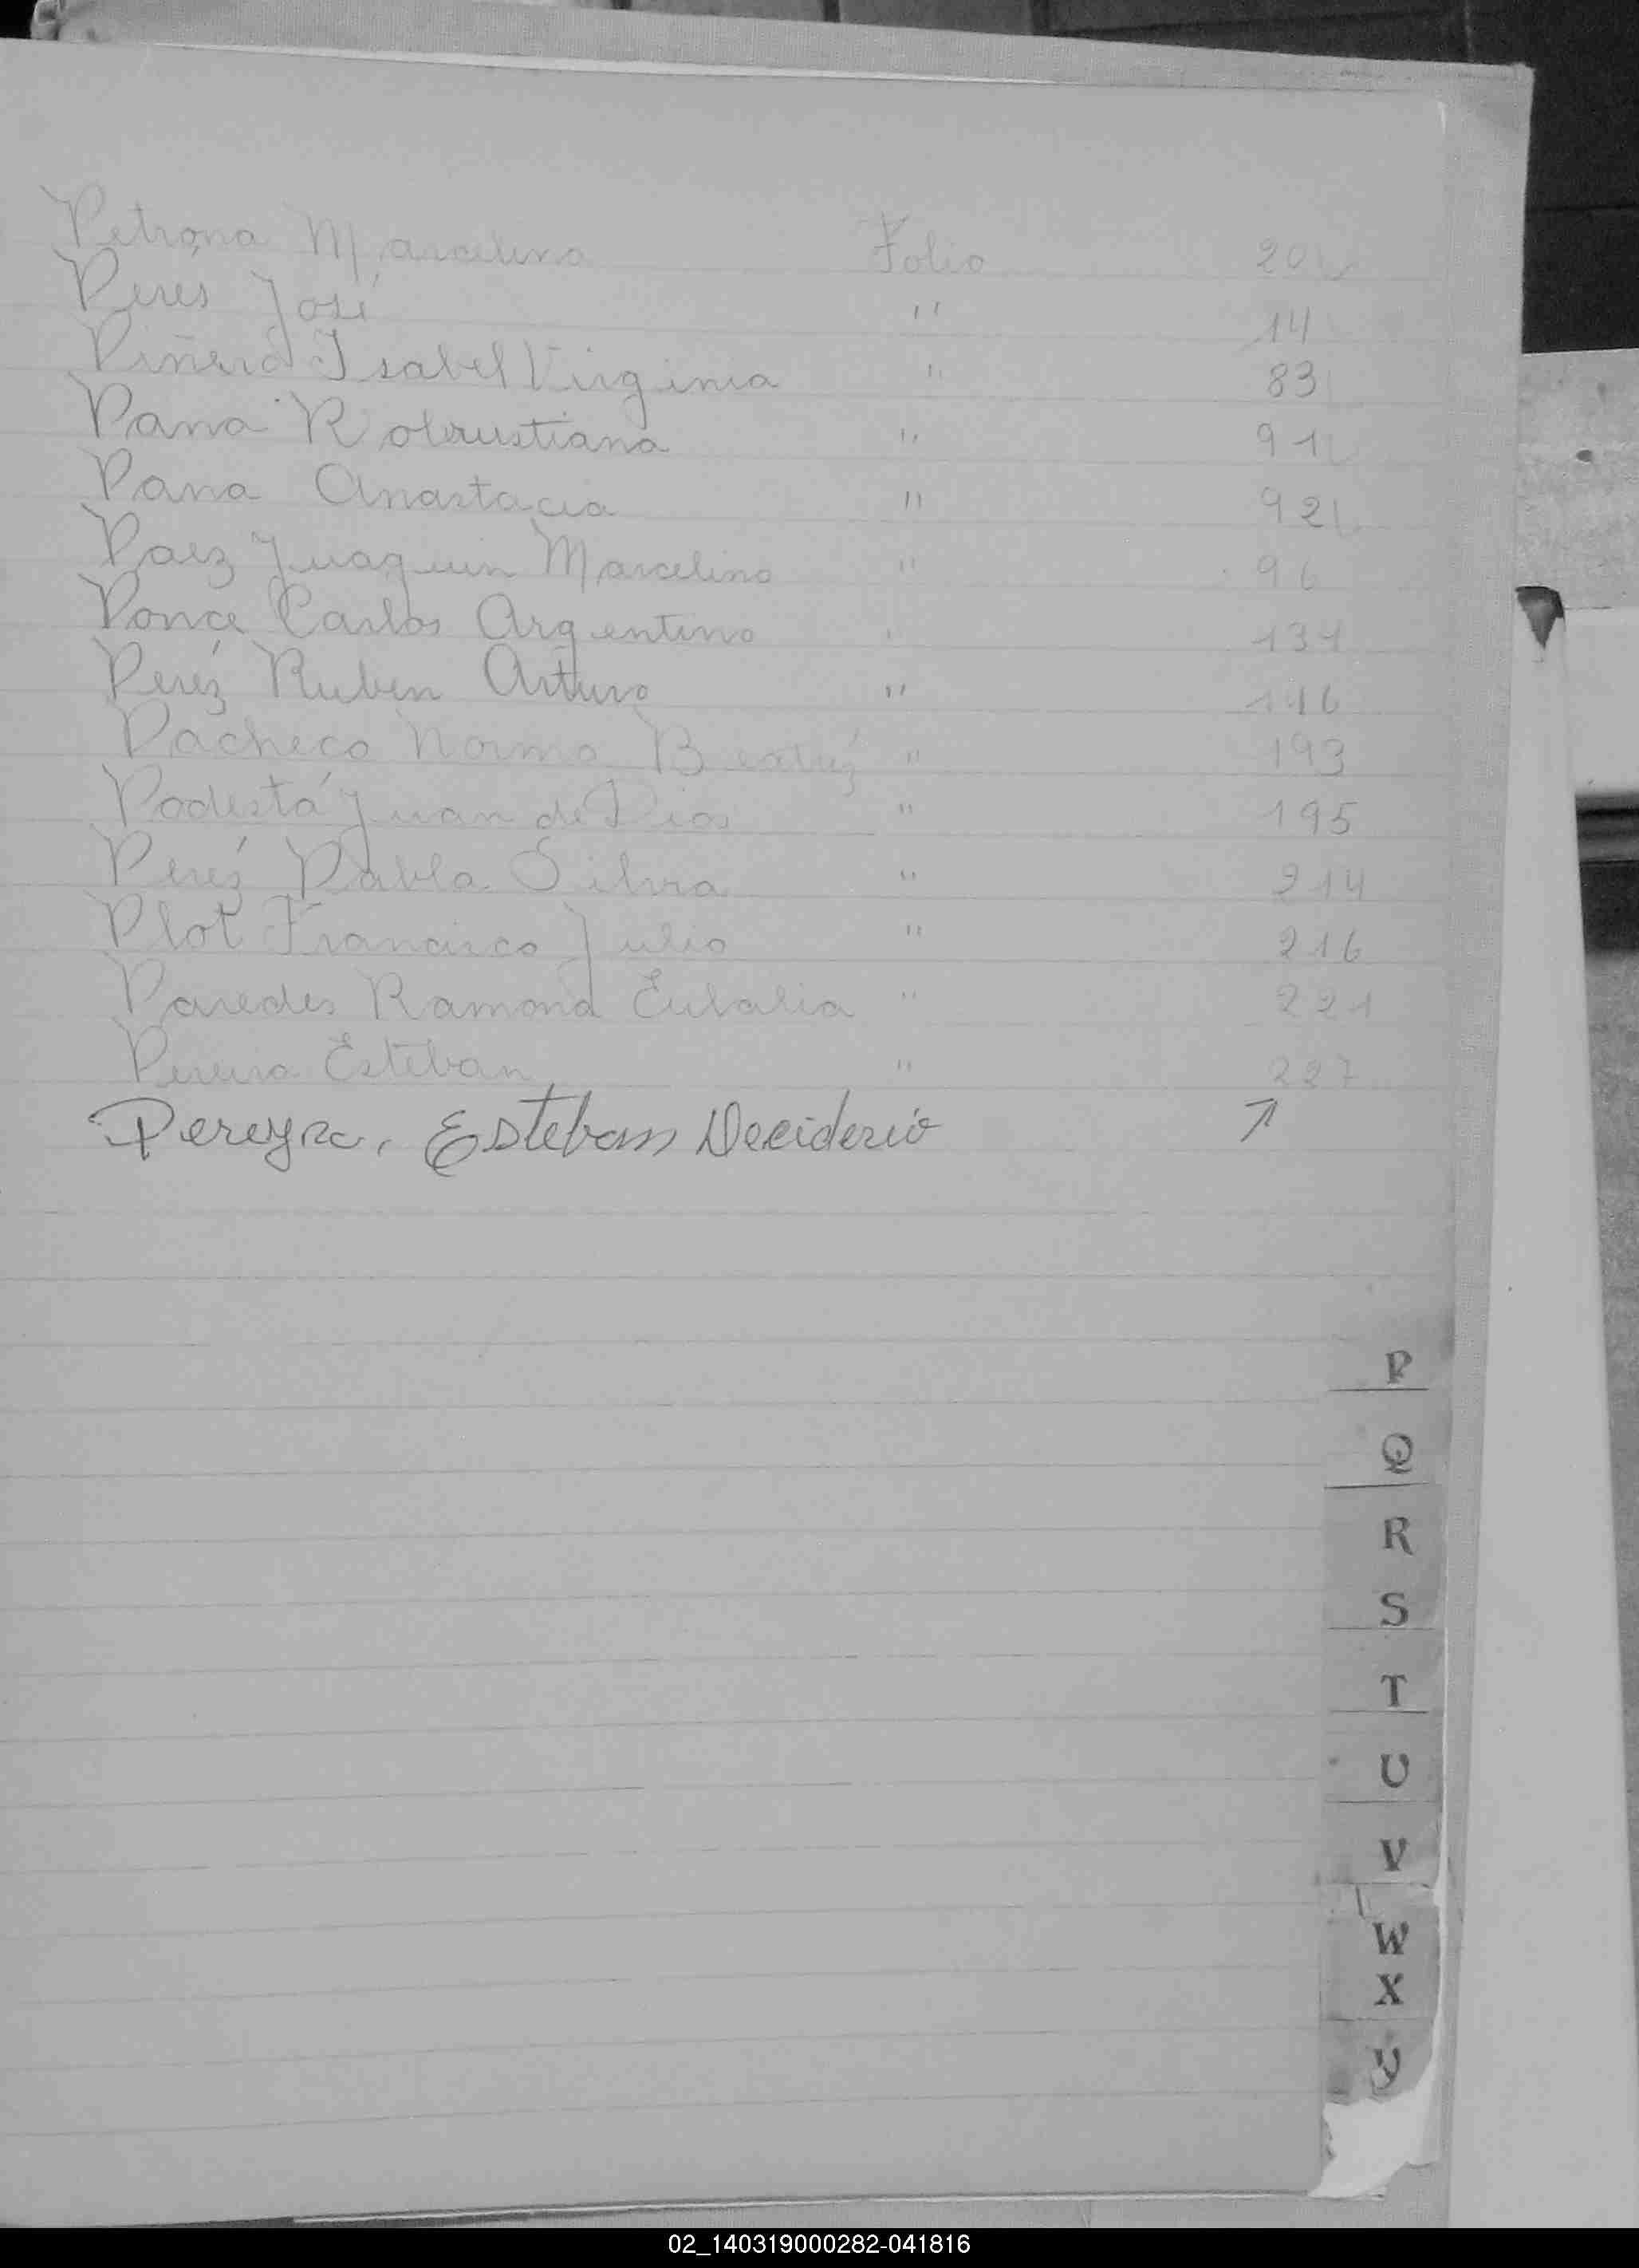 Petrona Marcelina Folio 20
Peres José " 14
Piñero Isabel Virginia " 83
Pana Robrustiana " 91
Pana Anastacia " 92
Paez Juaquin Marcelino " 96
Ponce Carlos Argentino " 131
Peréz Ruben Arturo " 146
Pacheco Norma Beatríz " 193
Podestá Juan de Dios " 195
Peréz Pabla Silvia " 214
Plot Francisco Julio " 216
Paredes Ramona Eulalia " 221
Pereira Esteban " 227
Pereyra, Esteban Deciderio ↗
P
Q
R
S
T
U
V
W
X
Y
02_140319000282-041816